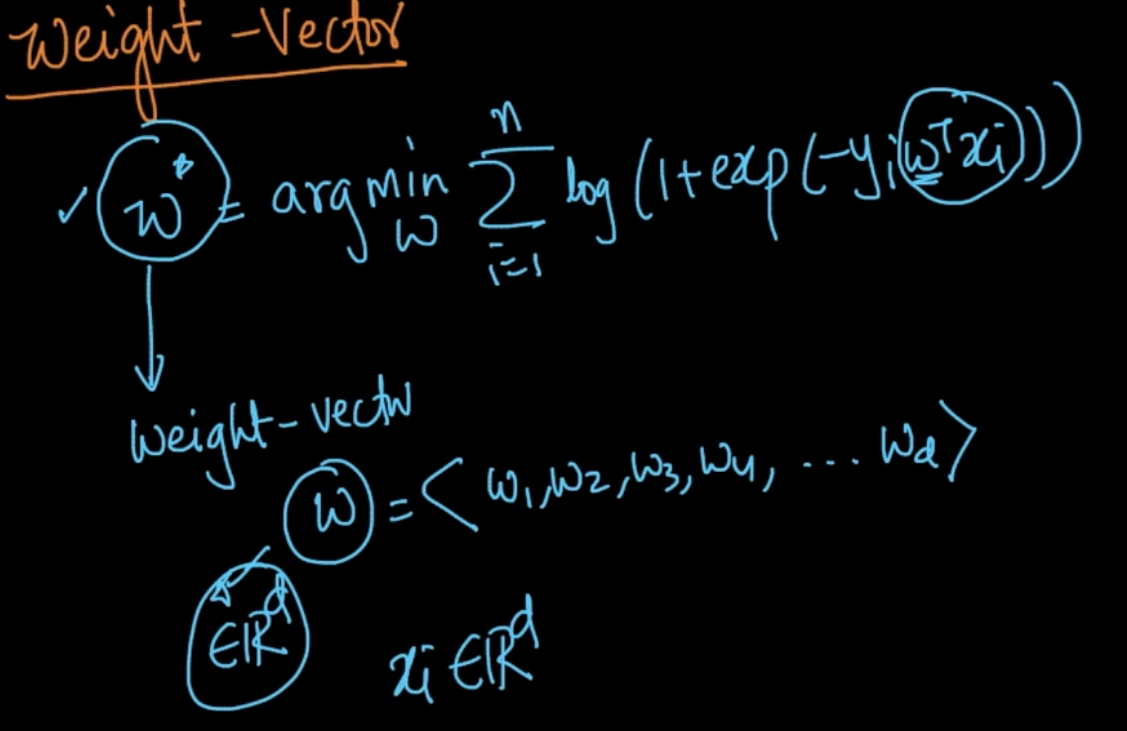 Weight-Vector
✓ w* = argmin_w Σ_{i=1}^{n} log(1+exp(-y_i w^T x_i)))
Weight-vector
w = <w₁, w₂, w₃, w₄, ... w_d>
∈ℝ^d x_i ∈ℝ^d